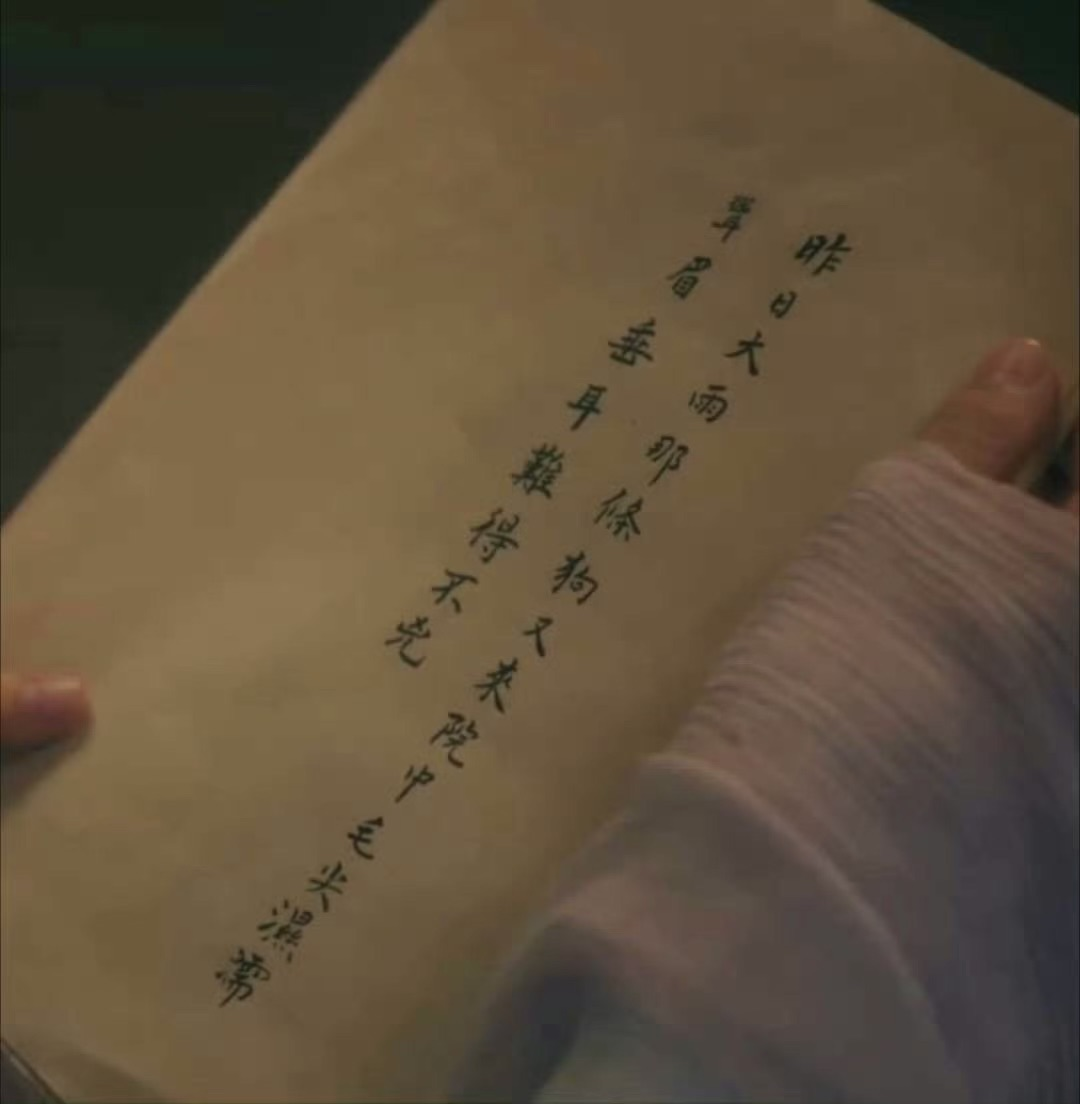 昨日大雨那條狗又來院中毛尖濕濡
眉垂耳難得不兇